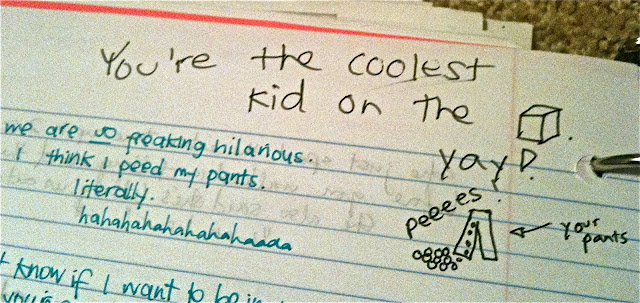 You're the coolest
kid on the
yay!
we are so freaking hilarious.
I think I peed my pants.
literally.
hahahahahahahahaaada
peeees!
your
pants
know if I want to be in